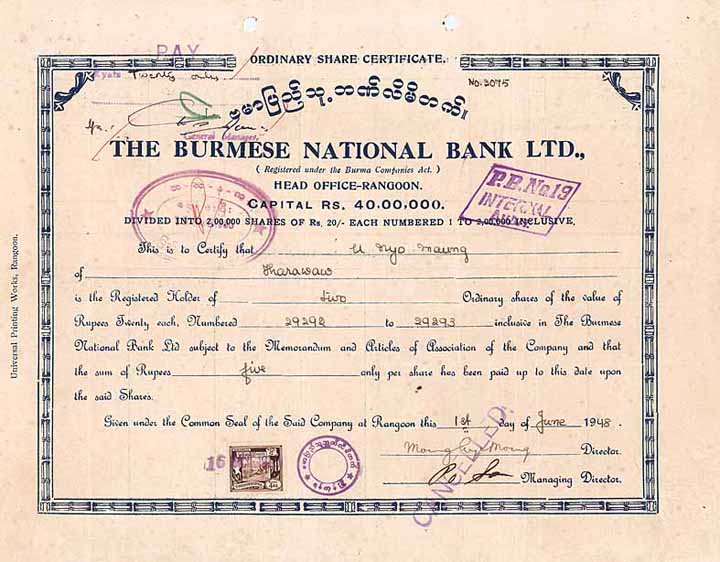 PAY
ORDINARY SHARE CERTIFICATE.
Kyats Twenty only
No. 3075
ဗမာပြည်သူ့ဘဏ်လီမိတက်။
General Manager.
THE BURMESE NATIONAL BANK LTD.,
( Registered under the Burma Companies Act. )
HEAD OFFICE-RANGOON.
CAPITAL RS. 40,00,000.
P.B. No. 19
INTERNAL
DIVIDED INTO 2,00,000 SHARES OF Rs. 20/- EACH NUMBERED 1 TO 2,00,000 INCLUSIVE.
This is to Certify that U Nyo Maung
of Tharawaw
is the Registered Holder of two Ordinary shares of the value of
Rupees Twenty each, Numbered 29292 to 29293 inclusive in The Burmese
National Bank Ltd subject to the Memorandum and Articles of Association of the Company and that
the sum of Rupees five only per share has been paid up to this date upon
the said Shares.
Given under the Common Seal of the Said Company at Rangoon this 1st day of June 1948.
Director.
Managing Director.
16
CANCELLED
Universal Printing Works, Rangoon.